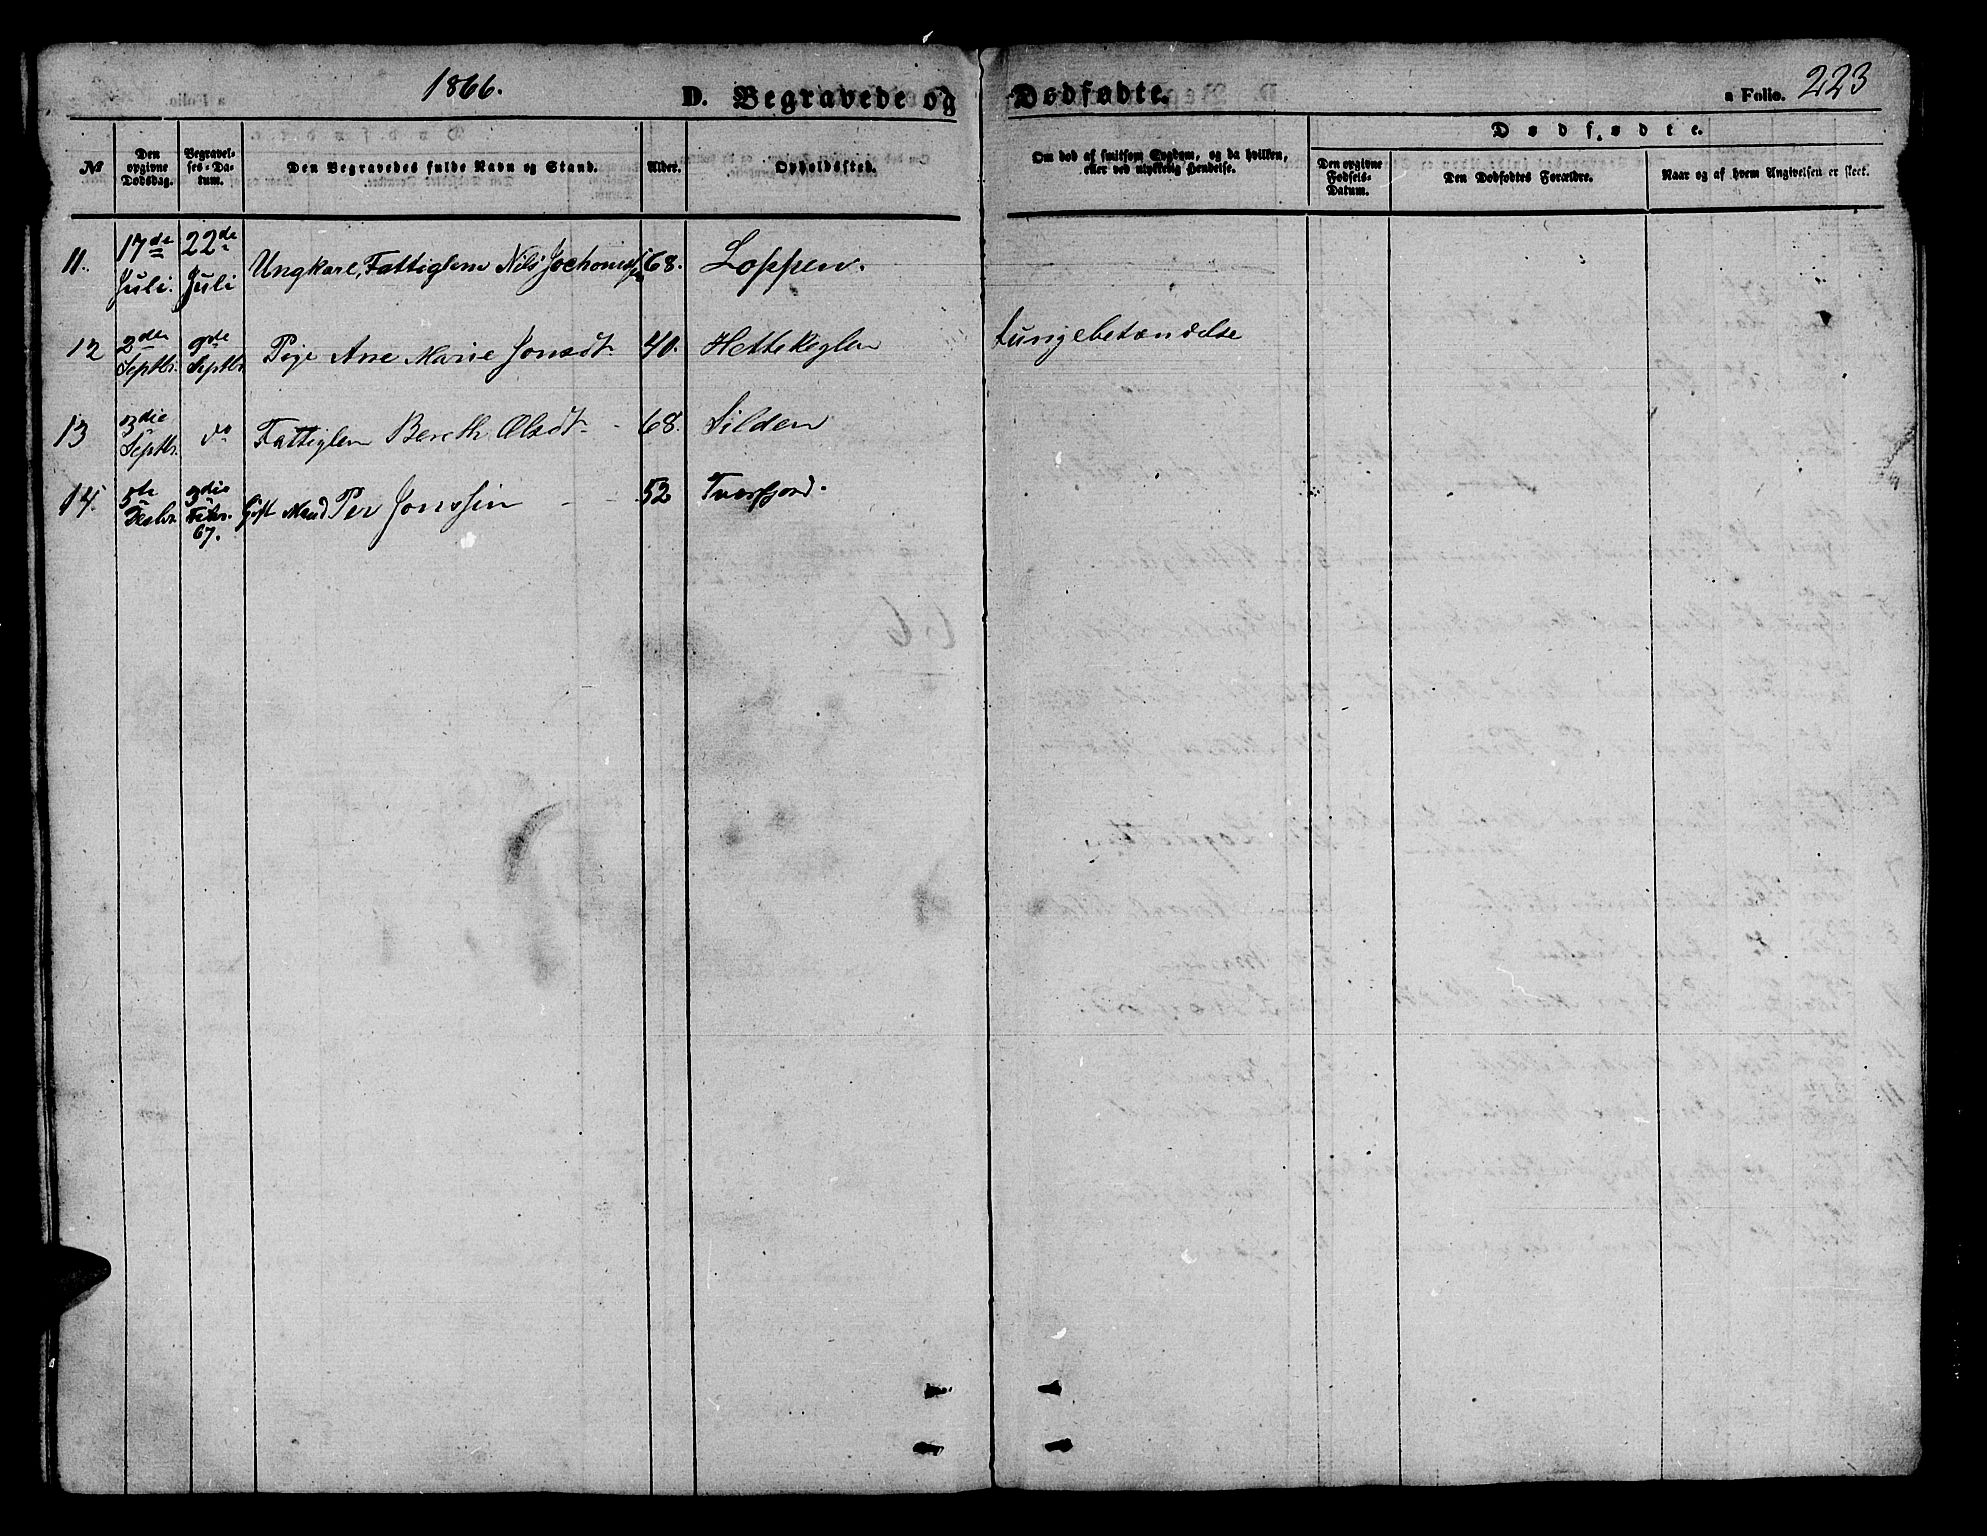 1866.
D. Begravede og Dødfødte.
a Folio. 223
Dødfødte.
№ Den opgivne Dødsdag. Begravelses-Datum. Den Begravedes fulde Navn og Stand. Alder. Opholdssted. Om død af smitsom Sygdom, og da hvilken, eller ved ulykkelig Hendelse. Den opgivne Fødsels-Datum. Den Dødfødtes Forældre. Naar og af hvem Angivelsen er skeet.
11. 17de Juli. 22de Juli Ungkarl, Fattiglem Nils Jochomssen 68. Loppen.
12 2den Septbr. 9de Septbr Pige Ane Marie Jonsdt. 40. Hettekeglen Lungebetændelse
13 3die Septbr. do Fattiglem Bereth Olsdt 68. Silden
14. 5te Decbr. 3die Febr. 67. Gift Mand Per Jonssen 52 Tverfjord.